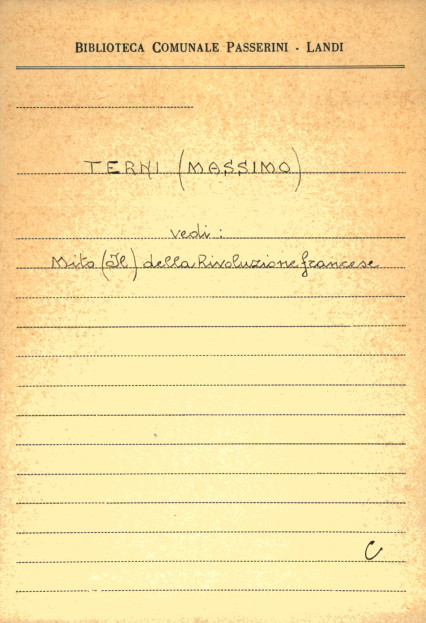 BIBLIOTECA COMUNALE PASSERINI - LANDI
TERNI (MASSIMO)
vedi :
Mito (Il) della Rivoluzione francese
C